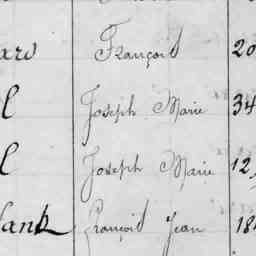 François 20
Joseph Marie 34
Joseph Marie 12
François Jean 18